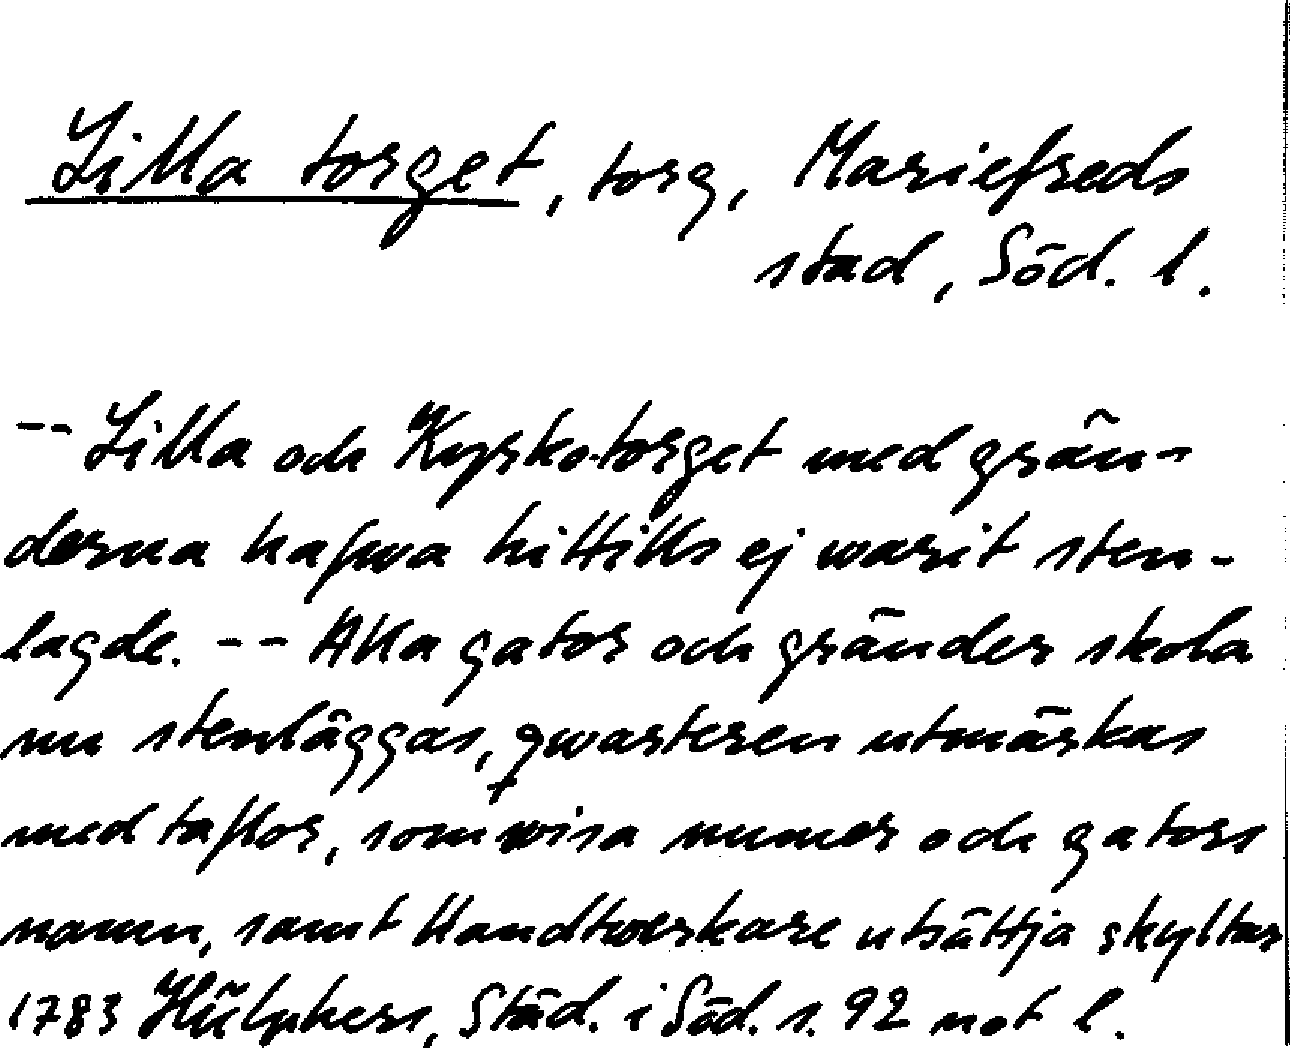 Lilla torget, torg, Mariefreds
stad, Söd. l.
-- Lilla och Kyrko-torget med grän-
derna hafwa hittills ej warit sten-
lagde. -- Alla gator och gränder skola
nu stenläggas, qwarteren utmärkas
med taflor, som wisa numer och gators
namn, samt Handtwerkare utsättja skyltar
1783 Hülphers, Städ. i Söd. s. 92 not l.